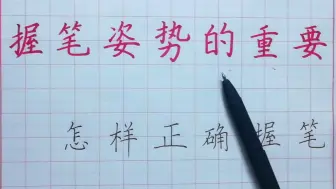 握笔姿势的重要
怎样正确握笔